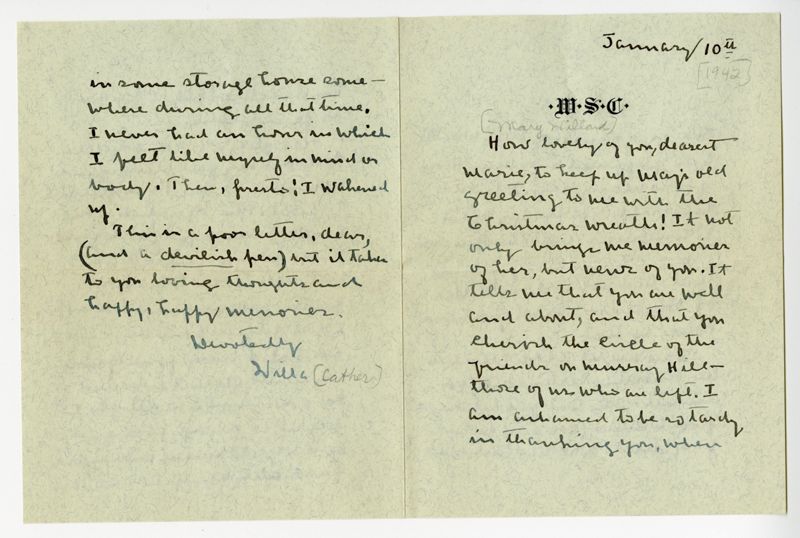 January 10th
[1942]
·W·S·C·
(Mary Willard)
How lovely of you, dearest
Marie, to keep up May's old
greeting to me with the
Christmas wreath! It not
only brings me memories
of her, but news of you. It
tells me that you are well
and about, and that you
cherish the circle of the
friends on Murray Hill—
those of us who are left. I
am ashamed to be so tardy
in thanking you, when
in some storage house some—
where during all that time.
I never had an hour in which
I felt like myself in mind or
body. Then, presto! I wakened
up.
This is a poor letter, dear,
(and a devilish pen) but it takes
to you loving thoughts and
happy, happy memories.
Devotedly
Willa (Cather)